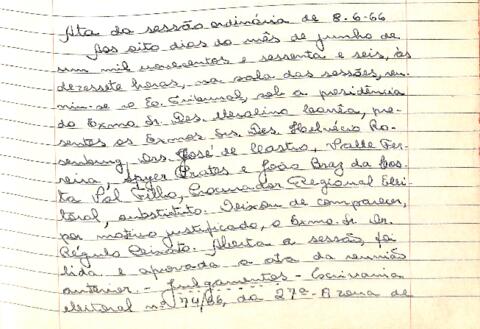 Ata da sessão ordinária de 8.6.66
Aos oito dias do mês de junho de
um mil novecentos e sessenta e seis, às
dezessete horas, na sala das sessões, reu-
niu-se o Eg. Tribunal, sob a presidência
do Exmo. Sr. Des. Merolino Corrêa, pre-
sentes os Exmos. Srs. Des. Helvécio Ro-
senburg, Drs. José de Castro, Valle Fer-
reira, Ayer Prates e João Braz da Cos-
ta Val Filho, Procurador Regional Elei-
toral, substituto. Deixou de comparecer,
por motivo justificado, o Exmo. Sr. Dr.
Régulo Peixoto. Aberta a sessão, foi
lida e aprovada a ata da reunião
anterior. - Julgamentos - Escrivania
eleitoral nº 74/66, da 27ª - Zona de